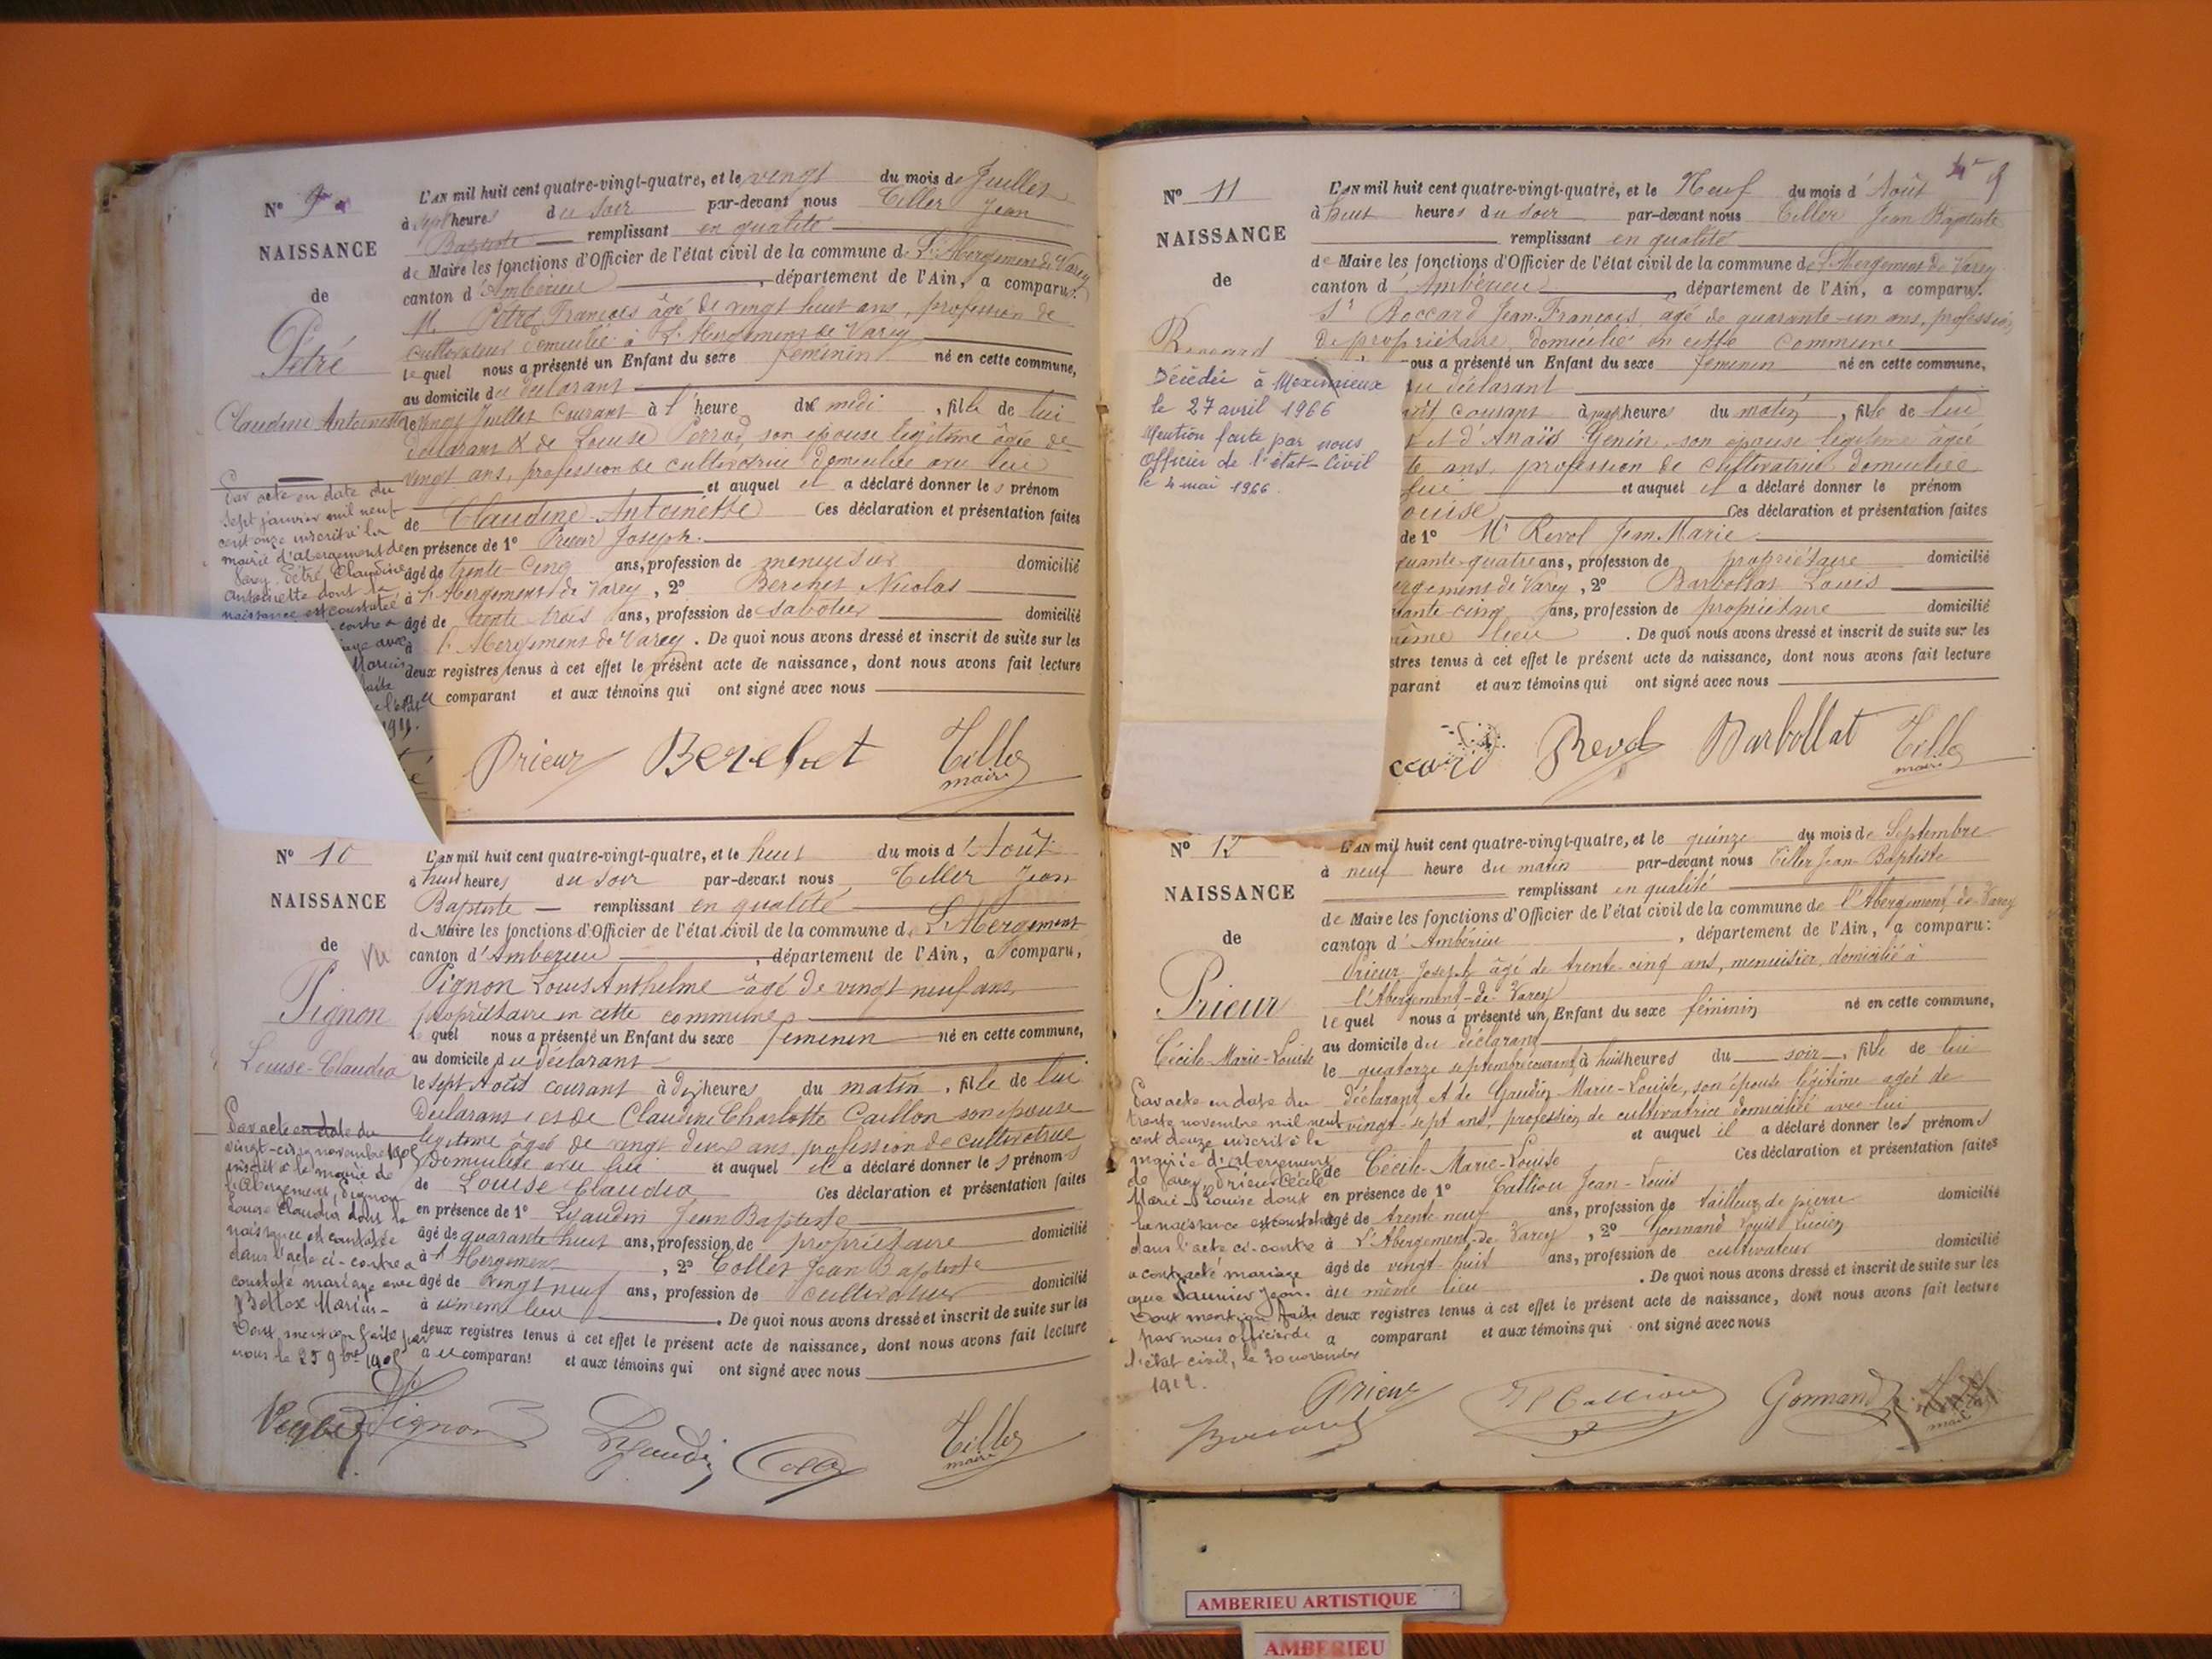 N° 9
NAISSANCE
de
Pétré
Claudine Antoinette
L'AN mil huit cent quatre-vingt-quatre, et le vingt du mois de Juillet
à sept heures du soir par-devant nous Tiller Jean
Baptiste remplissant en qualité
de Maire les fonctions d'Officier de l'état civil de la commune de L'Abergement de Varey
canton d'Ambérieu, département de l'Ain, a comparu:
M. Pétré François âgé de vingt huit ans, profession de
cultivateur domicilié à L'Abergement de Varey
lequel nous a présenté un Enfant du sexe féminin né en cette commune,
au domicile du déclarant
le vingt Juillet courant à l'heure de midi, fille de lui
déclarant & de Louise Perrod, son épouse légitime âgée de
vingt ans, profession de cultivatrice domiciliée avec lui
et auquel il a déclaré donner les prénom
de Claudine-Antoinette Ces déclaration et présentation faites
en présence de 1° Prieur Joseph
âgé de trente-cinq ans, profession de menuisier domicilié
à l'Abergement de Varey, 2° Berchet Nicolas
âgé de trente trois ans, profession de sabotier domicilié
à l'Abergement de Varey. De quoi nous avons dressé et inscrit de suite sur les
deux registres tenus à cet effet le présent acte de naissance, dont nous avons fait lecture
au comparant et aux témoins qui ont signé avec nous
Par acte en date du
sept janvier mil neuf
cent onze inscrit à la
mairie d'abergement de
Varey, Pétré Claudine
Antoinette dont la
naissance est constatée
contre a
iage avec
Marius
faite
l'état
1911.
Prieur Berchet Tiller
maire
N° 10
NAISSANCE
de
Vu
Pignon
Louise-Claudia
L'AN mil huit cent quatre-vingt-quatre, et le huit du mois d'Août
à huit heures du soir par-devant nous Tiller Jean
Baptiste remplissant en qualité
de Maire les fonctions d'Officier de l'état civil de la commune de L'Abergement
canton d'Ambérieu, département de l'Ain, a comparu,
Pignon Louis Anthelme âgé de vingt neuf ans
propriétaire en cette commune
lequel nous a présenté un Enfant du sexe féminin né en cette commune,
au domicile du déclarant
le sept Août courant à dix heures du matin, fille de lui
déclarant et de Claudine Charlotte Caillon son épouse
légitime âgée de vingt deux ans profession de cultivatrice
domiciliée avec lui et auquel il a déclaré donner les prénoms
de Louise Claudia Ces déclaration et présentation faites
en présence de 1° Lyaudin Jean Baptiste
âgé de quarante huit ans, profession de propriétaire domicilié
à l'Abergement, 2° Collet Jean Baptiste
âgé de vingt neuf ans, profession de cultivateur domicilié
à u même lieu. De quoi nous avons dressé et inscrit de suite sur les
deux registres tenus à cet effet le présent acte de naissance, dont nous avons fait lecture
au comparant et aux témoins qui ont signé avec nous
Par acte en date du
vingt-cinq novembre 1905
inscrit à la mairie de
l'Abergement, Pignon
Louise Claudia dont la
naissance est constatée
dans l'acte ci-contre a
contracté mariage avec
Bottex Marius
Dont mention faite par
nous le 25 9bre 1905
Pignon Lyaudin Collet Tiller
maire
N° 11
NAISSANCE
de
L'AN mil huit cent quatre-vingt-quatre, et le Neuf du mois d'Août
à huit heures du soir par-devant nous Tiller Jean Baptiste
remplissant en qualité
de Maire les fonctions d'Officier de l'état civil de la commune de L'Abergement de Varey
canton d'Ambérieu, département de l'Ain, a comparu:
Sr Boccard Jean-François, âgé de quarante-un ans, profession
de propriétaire, domicilié en cette commune
ous a présenté un Enfant du sexe féminin né en cette commune,
du déclarant
courant à heures du matin, fille de lui
et d'Anaïs Genin, son épouse légitime âgée
te ans, profession de cultivatrice domiciliée
lui et auquel il a déclaré donner le prénom
ouise Ces déclaration et présentation faites
de 1° Mr Revol Jean Marie
quante-quatre ans, profession de propriétaire domicilié
ergement de Varey, 2° Barbollat Louis
ante-cinq ans, profession de propriétaire domicilié
même lieu. De quoi nous avons dressé et inscrit de suite sur les
stres tenus à cet effet le présent acte de naissance, dont nous avons fait lecture
parant et aux témoins qui ont signé avec nous
Décédée à Meximieux
le 27 avril 1966
Mention faite par nous
Officier de l'état-Civil
le 4 mai 1966.
Revol Barbollat Tiller
maire
N° 12
NAISSANCE
de
Prieur
Cécile-Marie-Louise
L'AN mil huit cent quatre-vingt-quatre, et le quinze du mois de Septembre
à neuf heure du matin par-devant nous Tiller Jean-Baptiste
remplissant en qualité
de Maire les fonctions d'Officier de l'état civil de la commune de l'Abergement-de-Varey
canton d'Ambérieu, département de l'Ain, a comparu:
Prieur Joseph âgé de trente-cinq ans, menuisier domicilié à
l'Abergement-de-Varey
lequel nous a présenté un Enfant du sexe féminin né en cette commune,
au domicile du déclarant
le quatorze septembre courant à huit heures du soir, fille de lui
déclarant et de Gaudin Marie-Louise, son épouse légitime agée de
vingt-sept ans, profession de cultivatrice domiciliée avec lui
et auquel il a déclaré donner les prénoms
de Cécile-Marie-Louise Ces déclaration et présentation faites
en présence de 1° Callion Jean-Louis
âgé de trente neuf ans, profession de tailleur de pierre domicilié
à L'Abergement-de-Varey, 2° Gonnand Louis Lucien
âgé de vingt-huit ans, profession de cultivateur domicilié
au même lieu. De quoi nous avons dressé et inscrit de suite sur les
deux registres tenus à cet effet le présent acte de naissance, dont nous avons fait lecture
a comparant et aux témoins qui ont signé avec nous
Par acte en date du
trente novembre mil neuf
cent douze inscrit à la
mairie d'abergement
de Varey, Prieur Cécile
Marie-Louise dont
la naissance est constatée
dans l'acte ci-contre
a contracté mariage
avec Saunier Jean.
Dont mention faite
par nous officier de
l'état civil, le 30 novembre
1912.
Prieur Callion Gonnand
maire
AMBERIEU ARTISTIQUE
AMBERIEU